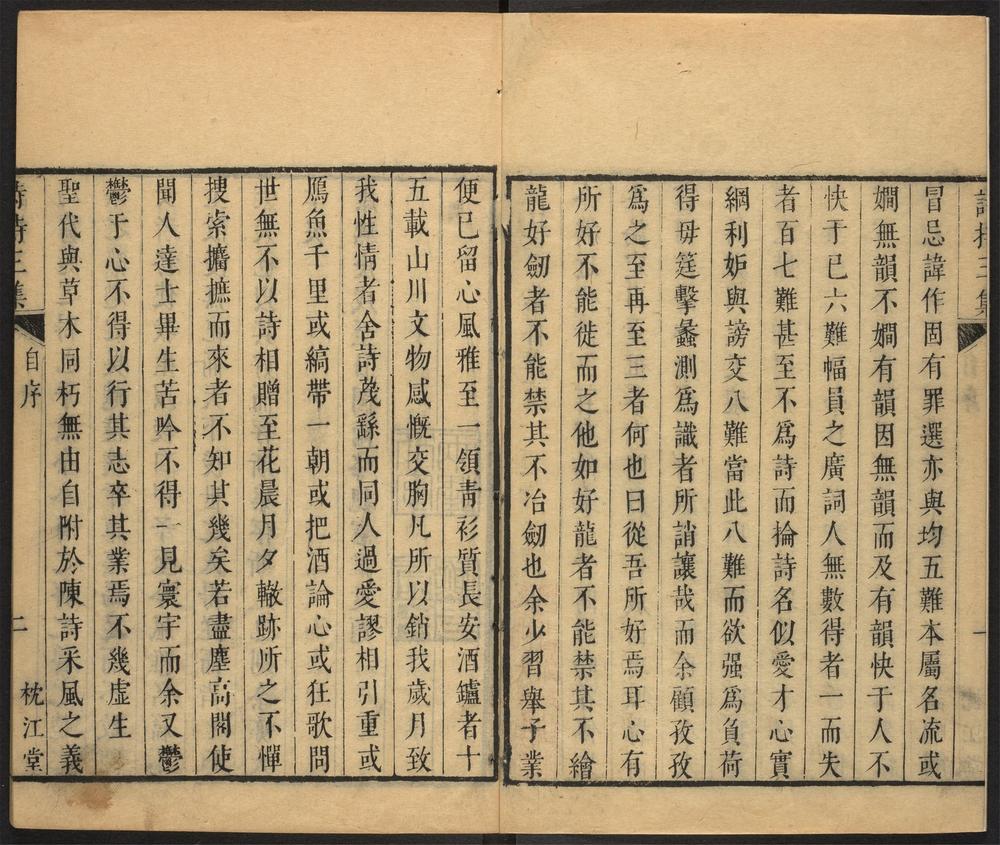 詩持三集
一
冒忌諱作固有罪選亦與均五難本屬名流或
嫺無韻不嫺有韻因無韻而及有韻快于人不
快于已六難幅員之廣詞人無數得者一而失
者百七難甚至不爲詩而掄詩名似愛才心實
綱利妬與謗交八難當此八難而欲强爲負荷
得毋筳擊蠡測爲識者所誚讓哉而余顧孜孜
爲之至再至三者何也曰從吾所好焉耳心有
所好不能徙而之他如好龍者不能禁其不繪
龍好劒者不能禁其不冶劒也余少習舉子業
便已留心風雅至一領靑衫質長安酒鑪者十
五載山川文物感慨交胸凡所以銷我歲月致
我性情者舍詩蔑繇而同人過愛謬相引重或
鴈魚千里或縞帶一朝或把酒論心或狂歌問
世無不以詩相贈至花晨月夕轍跡所之不憚
搜索攟摭而來者不知其幾矣若盡塵高閣使
聞人達士畢生苦吟不得一見寰宇而余又鬱
鬱于心不得以行其志卒其業焉不幾虛生
聖代與草木同朽無由自附於陳詩采風之義
詩持三集
自序
二
枕江堂